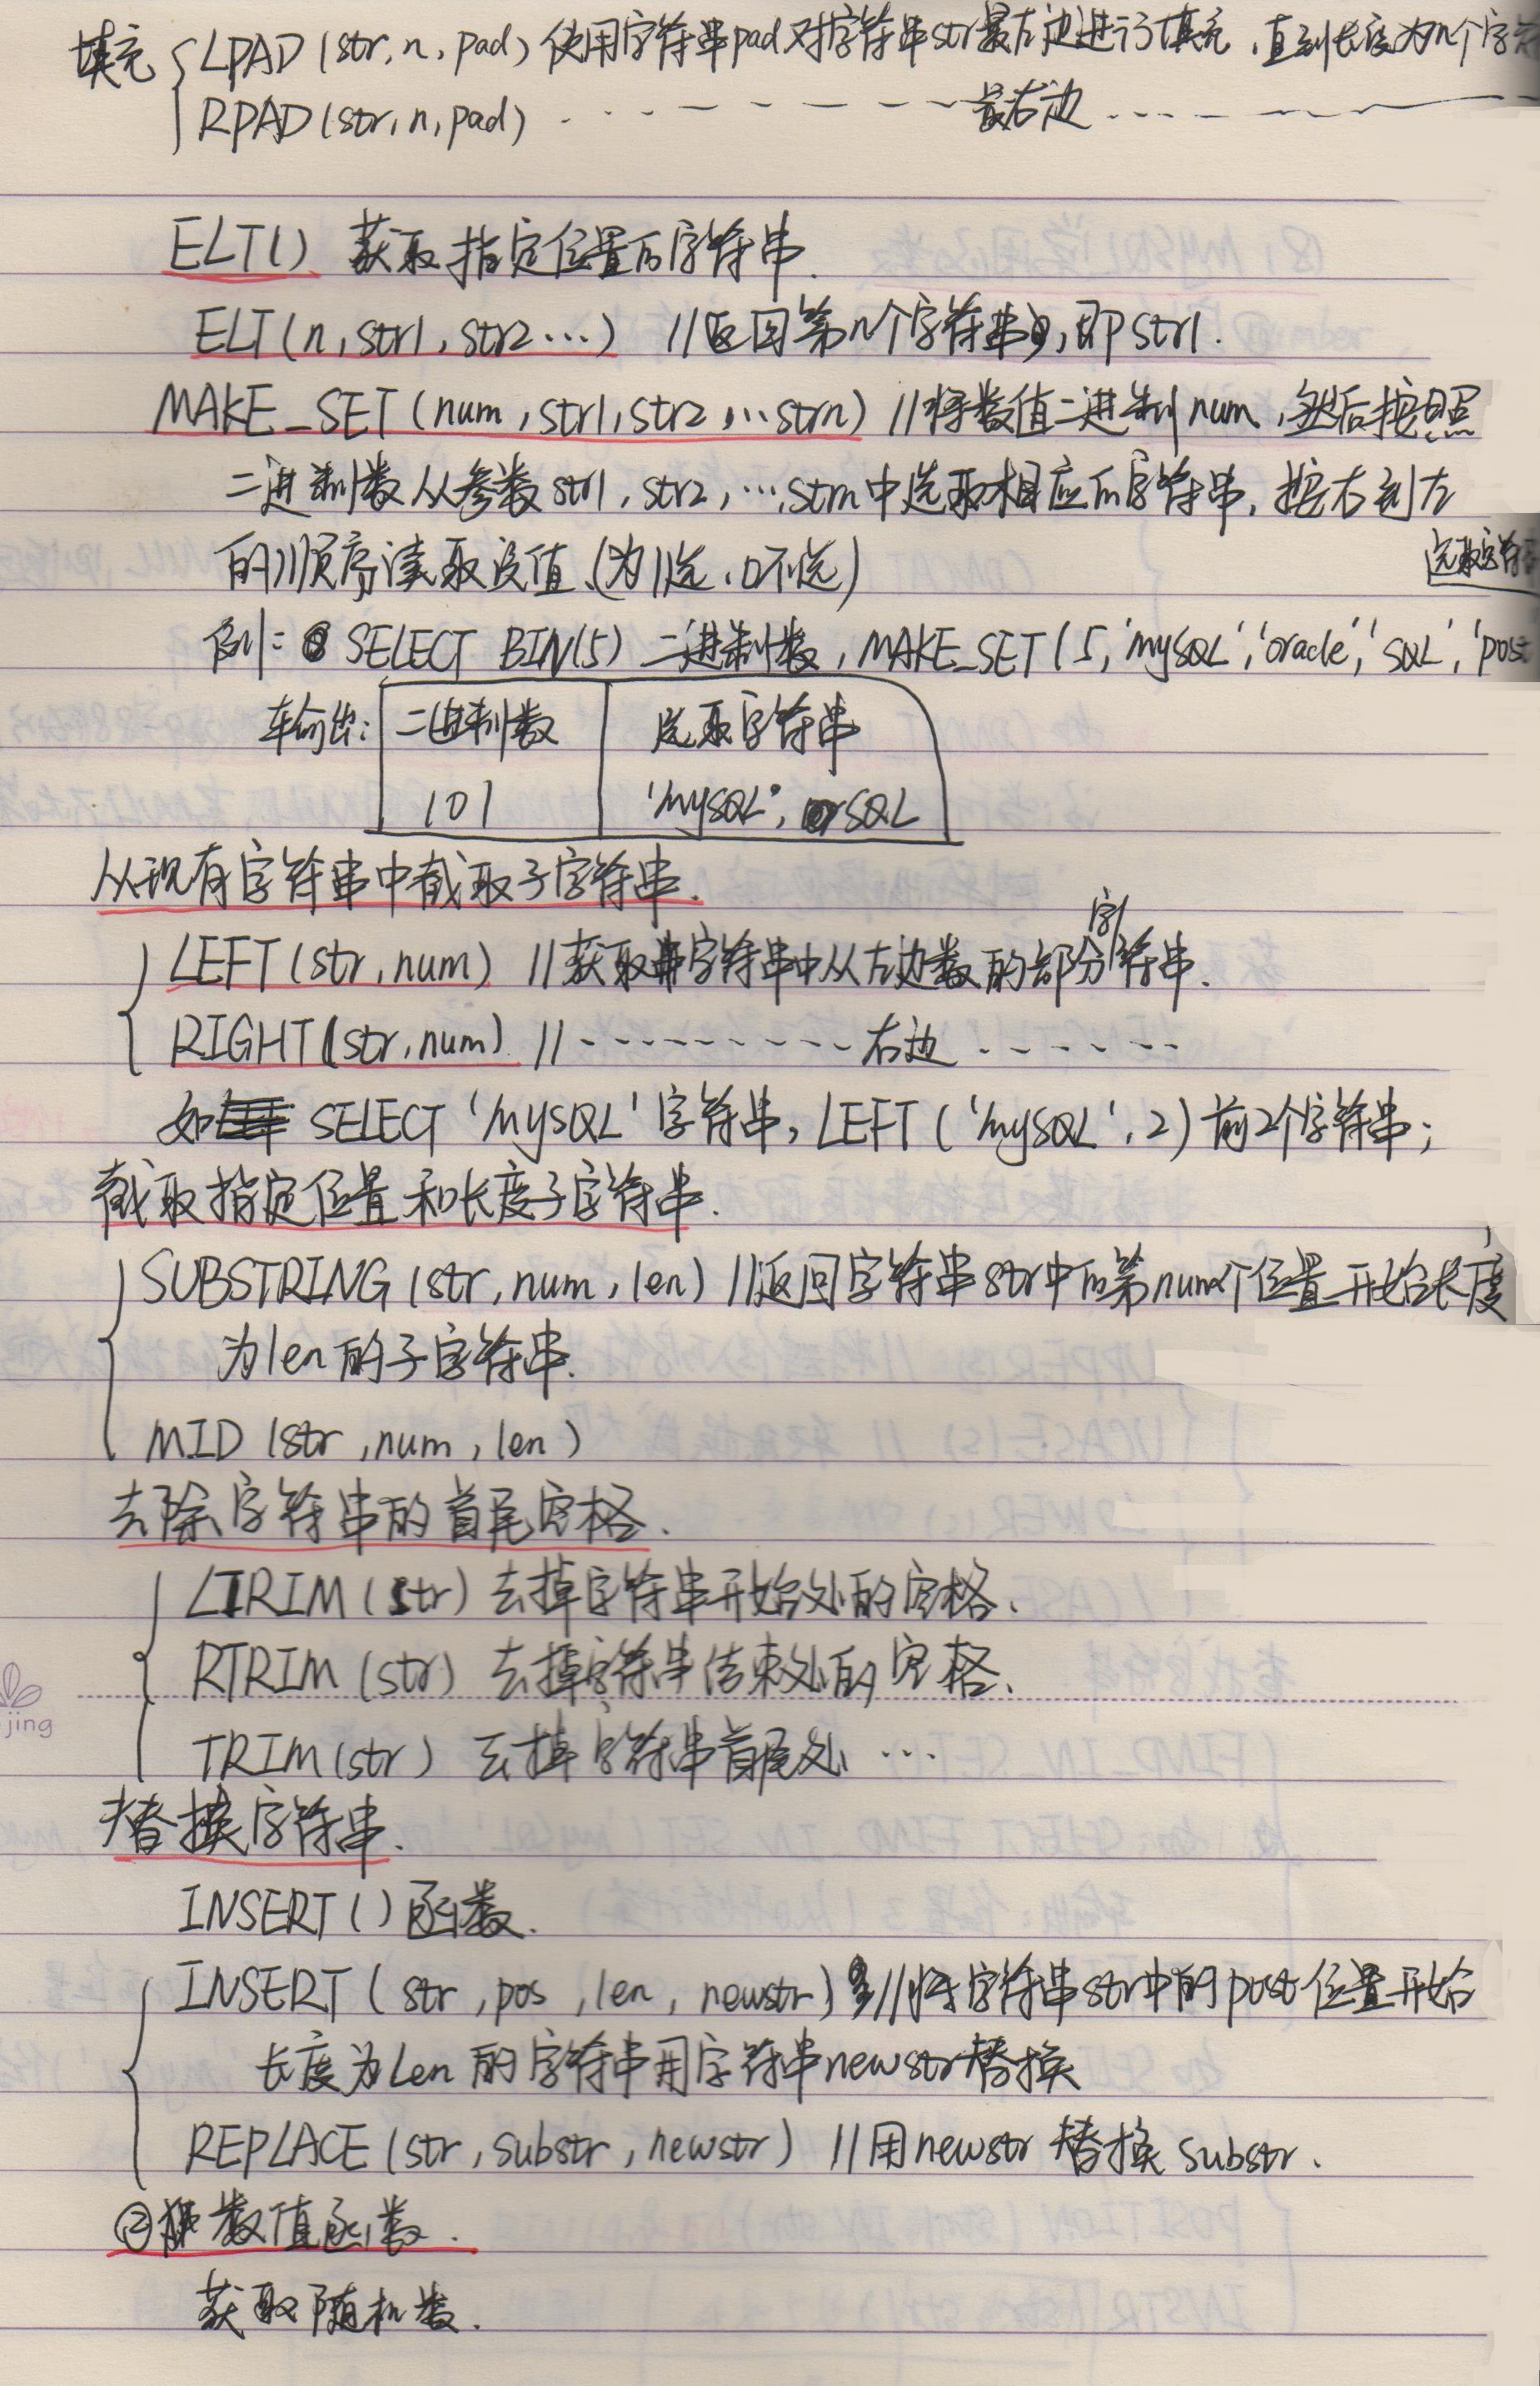 填充 { LPAD(str,n,pad) 使用字符串pad对字符串str最左边进行填充,直到长度为n个字
RPAD(str,n,pad) ··· — — — — — 最右边 ···· — — —
ELT() 获取指定位置的字符串.
ELT(n,str1,str2…) //返回第n个字符串,即str1.
MAKE_SET(num,str1,str2,…strn) //将数值二进制num,然后按照
二进制数从参数str1,str2,…,strn中选取相应的字符串,按右到左
的顺序读取该值、(为1选、0不选)
选取字符
例: SELECT BIN(5) 二进制数,MAKE_SET(5,'mySQL','oracle','SQL','pos
输出: 二进制数 选取字符串
101 'mySQL', SQL
从现有字符串中截取子字符串.
LEFT(str,num) //获取字符串中从左边数的部分字符串.
RIGHT(str,num) //--------- 右边 ------
如 SELECT 'mySQL' 字符串,LEFT('mySQL',2) 前2个字符串;
截取指定位置和长度子字符串.
SUBSTRING(str,num,len) //返回字符串str中的第num个位置开始长度
为len的子字符串.
MID(str,num,len)
去除字符串的首尾空格.
LTRIM(str) 去掉字符串开始处的空格、
RTRIM(str) 去掉字符串结束处的空格、
jing
TRIM(str) 去掉字符串首尾处 …
替换字符串.
INSERT()函数.
INSERT(str,pos,len,newstr) //将字符串str中的post位置开始
长度为len的字符串用字符串newstr替换
REPLACE(str,substr,newstr) //用newstr替换substr.
②数值函数.
获取随机数.